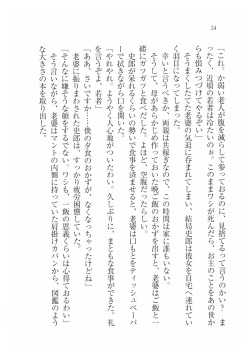 24
「これ、か弱い老人が腹を減らして参っておるのに、見捨てるって言うのかい？　ま
ったく、近頃の若者はなたいない。このままワシが死んだら、お主のことをあの世か
らも恨みつづけてやるぞ」
そうまくしたててきた老婆の気迫に呑まれてしまい、結局史郎は彼女を自宅へ連れてい
く羽目になってしまった。
幸いと言うべきか、両親は共稼ぎなので、この時間は家に誰もいない。
そうして、母が作りおきしておいた晩ご飯のおかずを出すと、老婆はご飯と一
緒にガツガツと食べだした。よほど、空腹だったらしい。
史郎が呆れるくらいの勢いで食事を済ませると、老婆は口もとをティッシュペーパ
ーで拭きながら口を開いた。
「やれやれ、ようやく人心地がついたわい。久しぶりに、まともな食事ができた。礼
を言うぞよ、若者」
「ああ、さいですか……僕の夕食のおかずが、なくなっちゃったけどね」
老婆に振りまわされた史郎は、すっかり疲労困憊していた。
「そんなに嫌そうな顔をするでない。ワシも、一飯の恩義くらいは心得ておるわい」
そう言いながら、老婆はマントの内側に持っていた肩掛けカバンから、図鑑のよう
な大きさの本を取り出した。